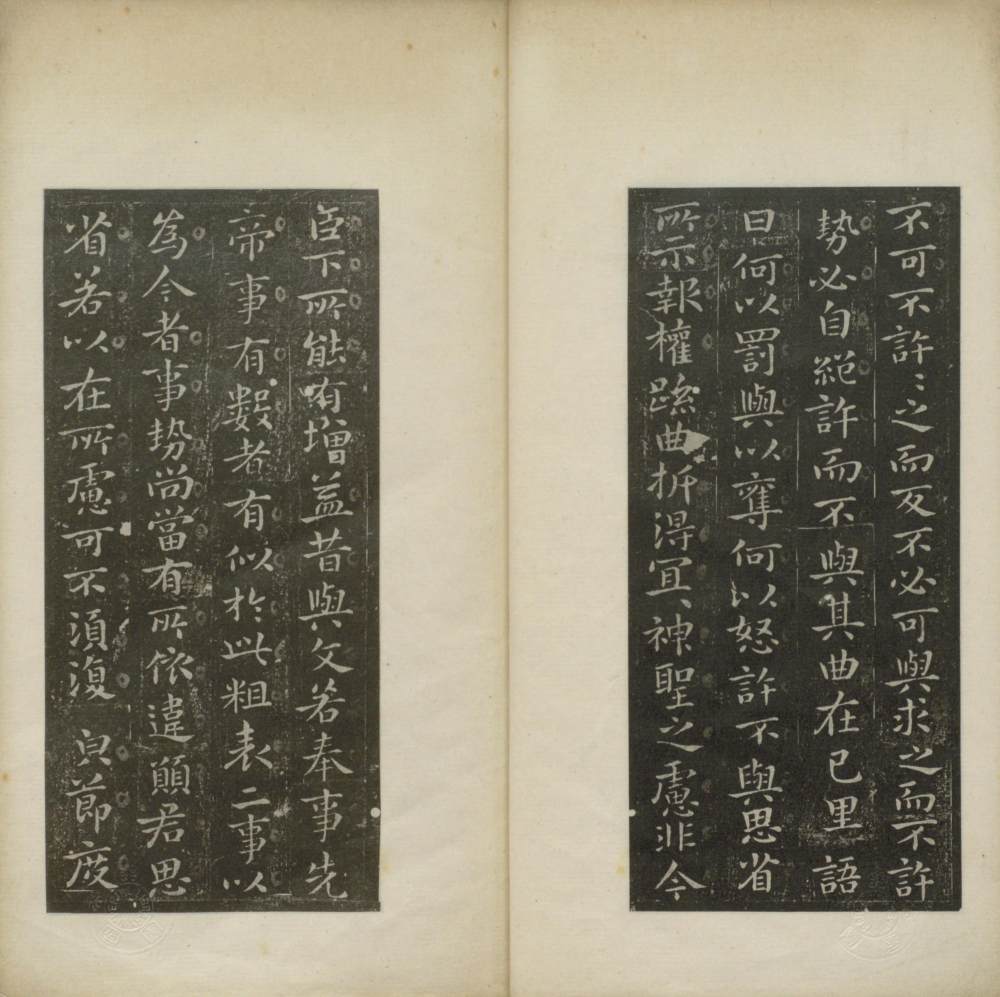 不可不許〻之而反不必可與求之而不許
勢必自絕許而不與其曲在己里語
曰何以罰與以奪何以怒許不與思省
所示報權疏曲折得宜宜神聖之慮非今
臣下所能有增益昔與文若奉事先
帝事有數者有似於此粗表二事以
為今者事勢尚當有所依違願君思
省若以在所慮可不須復臾節度